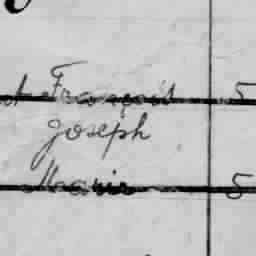 François 5
Joseph
Marie 5